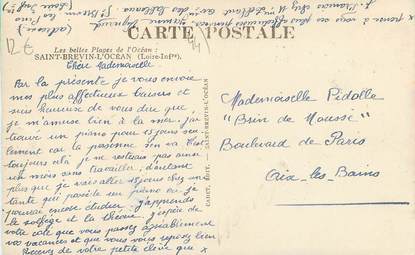 CARTE POSTALE
Les belles Plages de l'Océan :
SAINT-BREVIN-L'OCÉAN (Loire-Infre)
Chère Mademoiselle
Par la présente je vous envoie
mes plus affectueux baisers et
suis heureuse de vous dire que
je m'amuse bien à la mer. J'ai
trouvé un piano pour 15 jours seu-
lement car la personne
toujours là je ne resterais pas ainsi
un mois sans travailler, d'autant
plus que je vais aller 15 jours chez une
tante qui possède un piano où je
pourrai encore étudier. J'apprends
le solfège et la théorie, j'espère de
votre côté que vous passez agréablement
vos vacances et que vous vous reposez bien
Recevez de votre petite élève que x
Mademoiselle Pidolle
"Brin de Mousse"
Boulevard de Paris
Aix-les-Bains
x pense à vous ses plus affectueux
12€